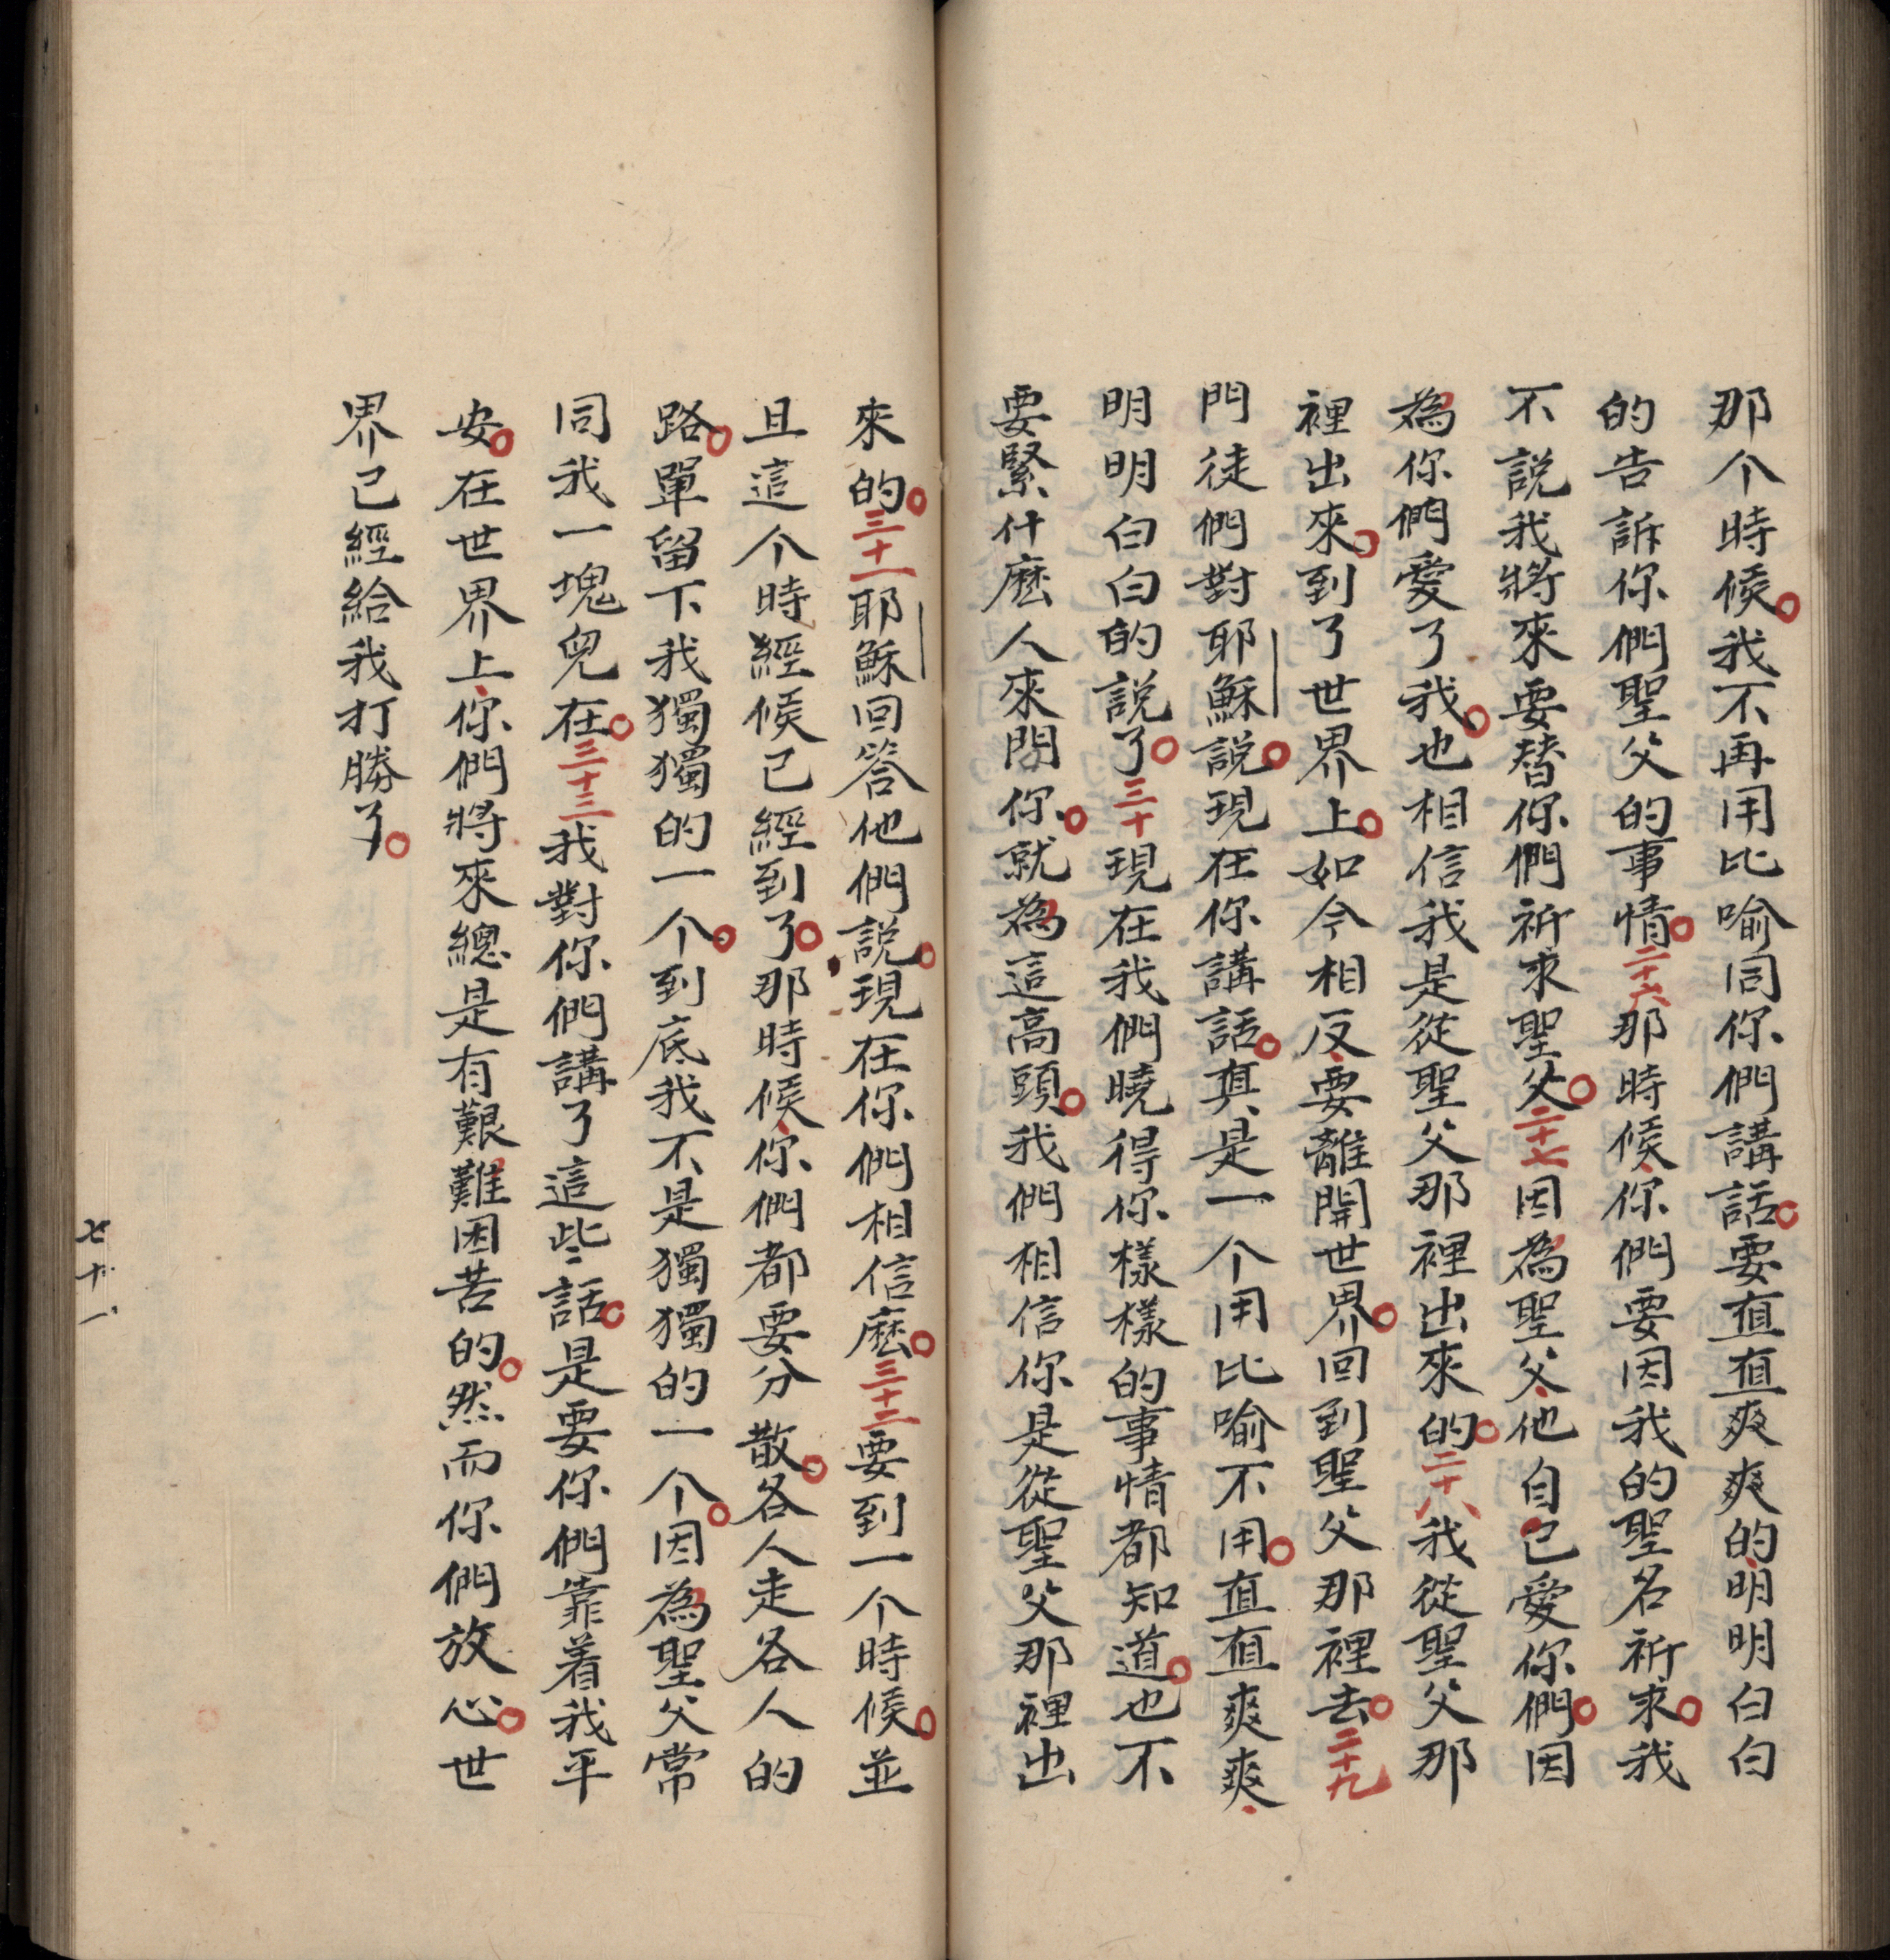 那个時候。我不再用比喻同你們講話。要直直爽爽的、明明白白
的告訴你們聖父的事情。二十六那時候、你們要因我的聖名祈求。我
不說我將來要替你們祈求聖父。二十七因為聖父、他自己愛你們。因
為你們愛了我。也相信我是從聖父那裡出來的。二十八我從聖父那
裡出來。到了世界上。如今相反、要離開世界。回到聖父那裡去。二十九
門徒們對耶穌說。現在你講話。真是一个用比喻不用。直直爽爽、
明明白白的說了。三十現在我們曉得你樣樣的事情都知道。也不
要緊什麽人來問你。就為這高頭。我們相信你是從聖父那裡出
來的。三十一耶穌回答他們說。現在你們相信麽。三十二要到一个時候。並
且這个時經候已經到了。那時候、你們都要分散。各人走各人的
路。單留下我獨獨的一个。到底我不是獨獨的一个。因為聖父常
同我一塊兒在。三十三我對你們講了這些話。是要你們靠着我平
安。在世界上、你們將來總是有艱難困苦的。然而你們放心。世
界已經給我打勝了。
七十一